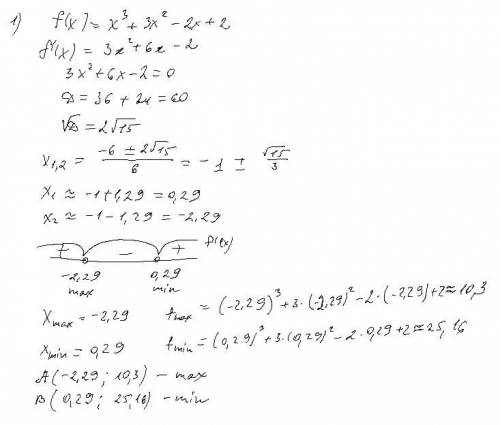 1) f(x) = x³ + 3x² - 2x + 2
f'(x) = 3x² + 6x - 2
3x² + 6x - 2 = 0
D = 36 + 24 = 60
√D = 2√15
x₁,₂ = (-6 ± 2√15)/6 = -1 ± √15/3
x₁ ≈ -1 + 1,29 = 0,29
x₂ ≈ -1 - 1,29 = -2,29
+ - + f'(x)
-2,29 0,29
max min
x max = -2,29 f max = (-2,29)³ + 3·(-2,29)² - 2·(-2,29) + 2 ≈ 10,3
x min = 0,29 f min = (0,29)³ + 3·(0,29)² - 2·0,29 + 2 ≈ 25,16
A (-2,29; 10,3) - max
B (0,29; 25,16) - min